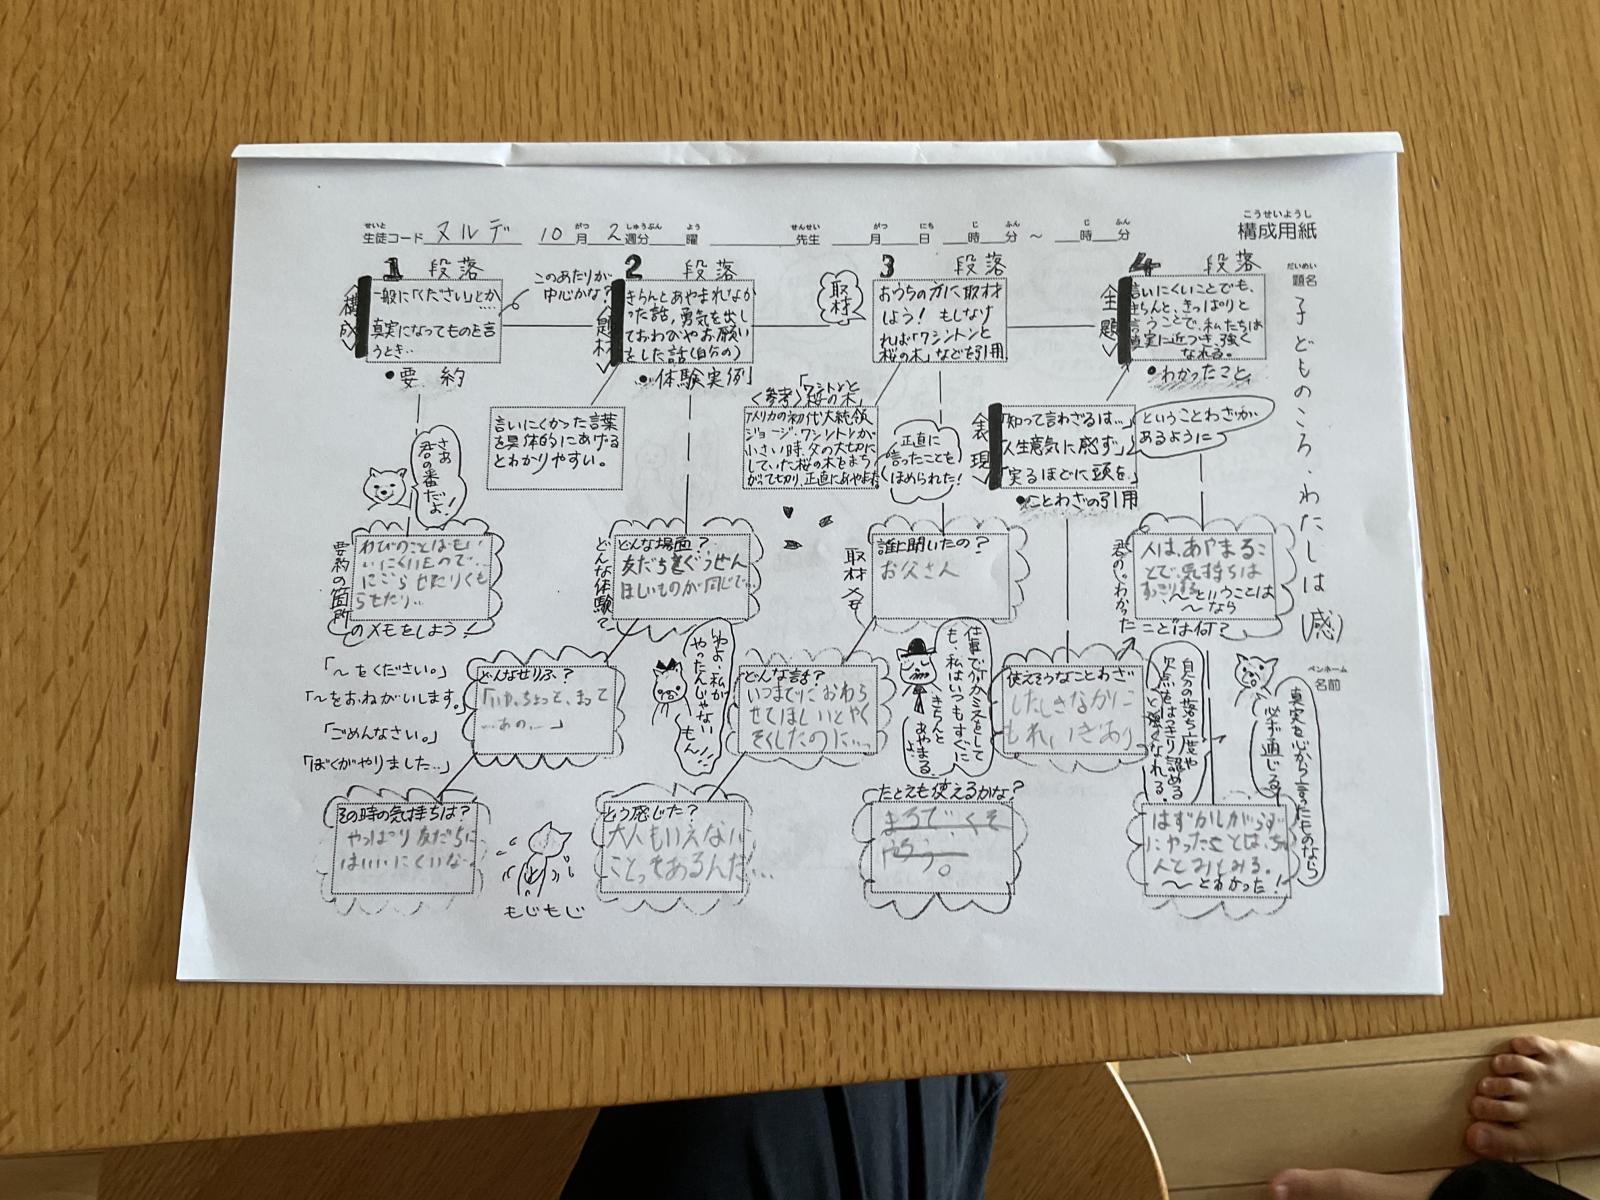 構成用紙
こうせいようし
せいと
生徒コード ヌルデ 10月 2週分 曜 先生 月 日 時 分 ～ 時 分
だいめい
題名
子どものころ、わたしは(感)
ペンネーム
名前
1 段落
〈構成〉
一般に「ください」とか…
真実になってものを言
うとき…
このあたりが
中心かな?
●要約
さあ
君の番だよ!
要約の箇所
わびのことばもい
いにくいもので…
にごらせたりくも
らせたり…
のメモをしよう!
「～をください。」
「～をおねがいします。」
「ごめんなさい。」
「ぼくがやりました…」
2 段落
〈題材〉
きちんとあやまれなか
った話,勇気を出し
ておわびやお願い
をした話(自分の)
●体験実例
言いにくかった言葉
を具体的にあげる
とわかりやすい。
どんな体験で
どんな場面?
友だちとぐうせん
ほしいものが同じで…
どんなせりふ?
「いや、ちょっと、まって
…あの…」
その時の気持ちは?
やっぱり友だちに
はいいにくいな。
もじもじ
わよ、私が
やったんじゃない
もん!!
3 段落
取材
おうちの方に取材
しよう! もしなけ
れば「ワシントンと
桜の木」などを引用
〈参考〉「ワシントンと
桜の木」
アメリカの初代大統領
ジョージ・ワシントンが
小さい時、父の大切に
していた桜の木をまち
がって切り、正直にあやまった
正直に
言ったことを
ほめられた!
取材メモ
誰に聞いたの?
お父さん
どんな話?
いつまでにおわら
せてほしいとやく
そくしたのに…
どう感じた?
大人もいえない
ことってあるんだ…
仕事で何かミスをして
も、私はいつもすぐに
きちんと
あやまる
よ
たとえも使えるかな?
まるで、くそ
4 段落
〈主題〉
言いにくいことでも、
きちんと、きっぱりと
言うことで、私たちは
真実に近づき、強く
なれる。
●わかったこと
表現
「知って言わざるは…」
「人生意気に感ず」
「実るほどに頭を」
ということわざが
あるように
●ことわざの引用
君の「わかった
ことは何?
人は、あやまるこ
とで、気持ちは
すっきりする
～ということは
～なら
使えそうなことわざ
したしきなかに
もれいぎあり
自分の落ち度や
欠点をはっきり認める
と強くなれる。
真実を心から言ったものなら
必ず通じる。
はずかしがらず
にやったことは、ちゃ
んとみとみる。
～とわかった!